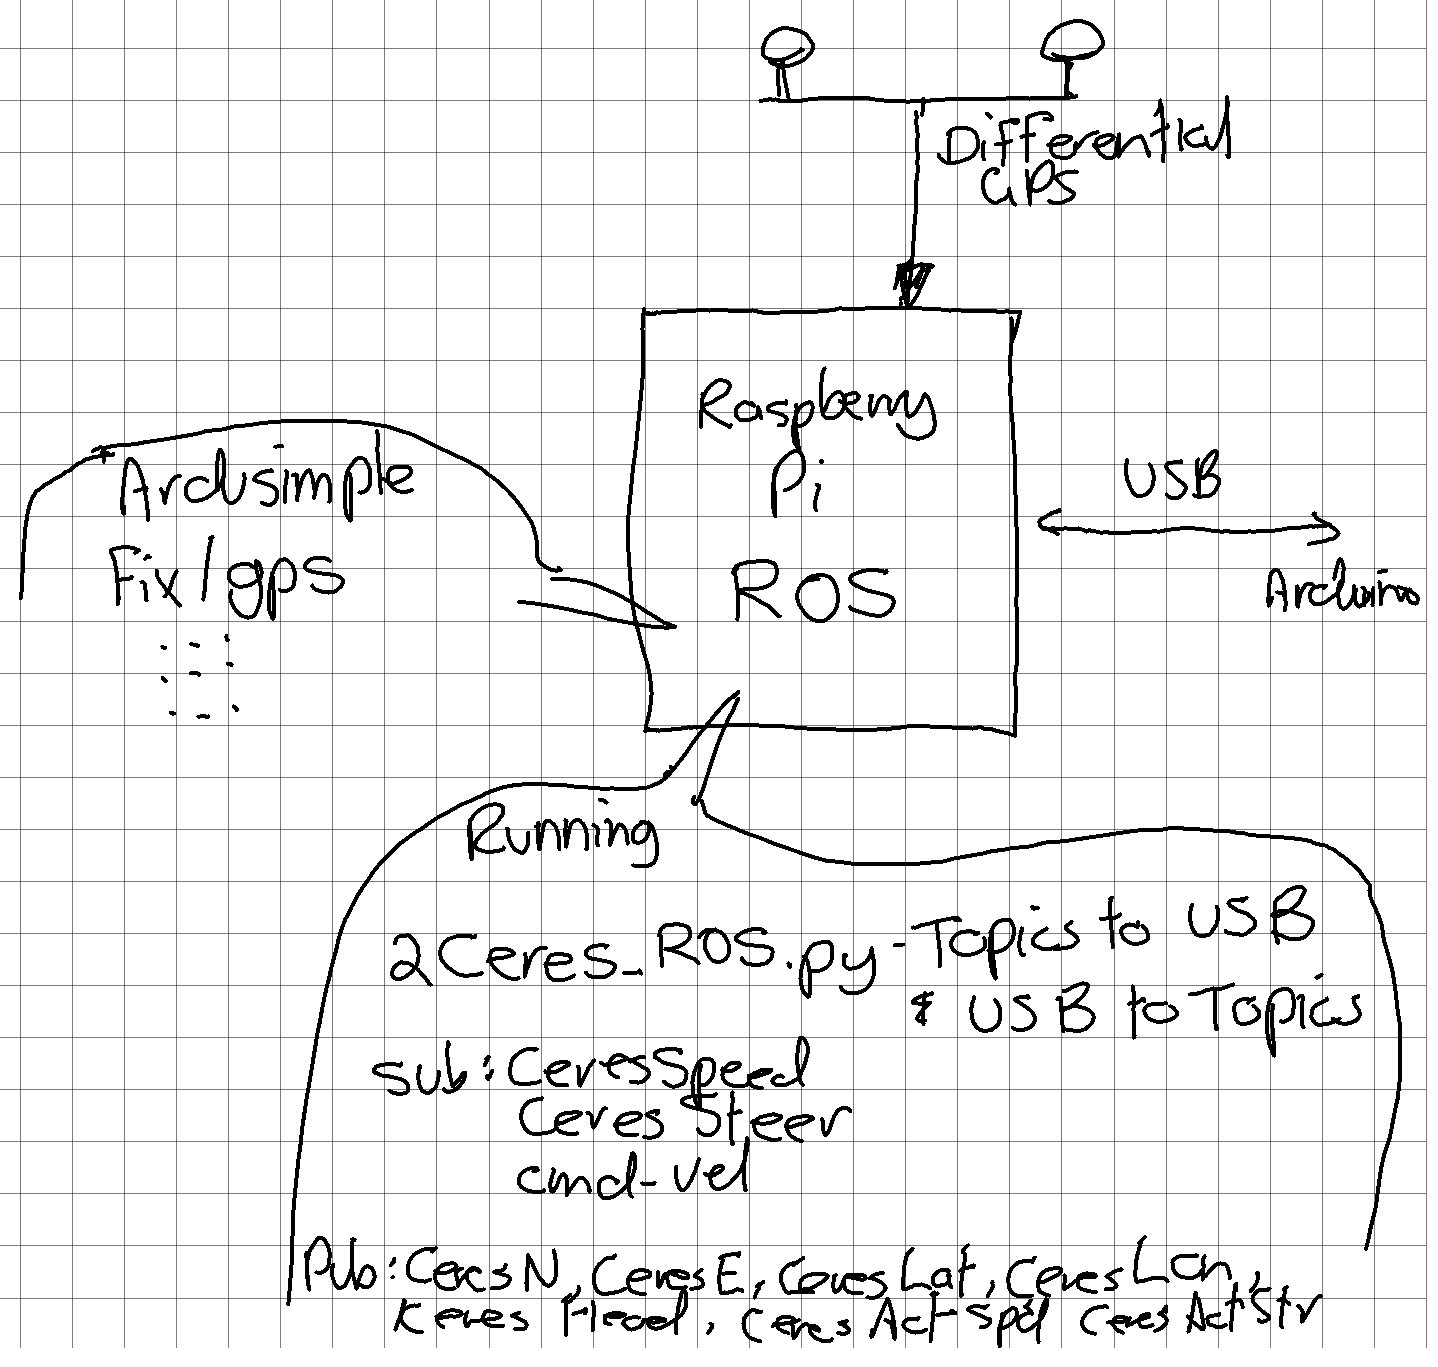 Differential
GPS
Raspberry
Pi
ROS
USB
Arduino
Ardusimple
Fix/gps
Running
2Ceres_ROS.py - Topics to USB
& USB to Topics
sub: CeresSpeed
Ceres Steer
cmd-vel
Pub: CeresN, CeresE, CeresLat, CeresLon,
Ceres Head, Ceres Act-Spd Ceres ActStr